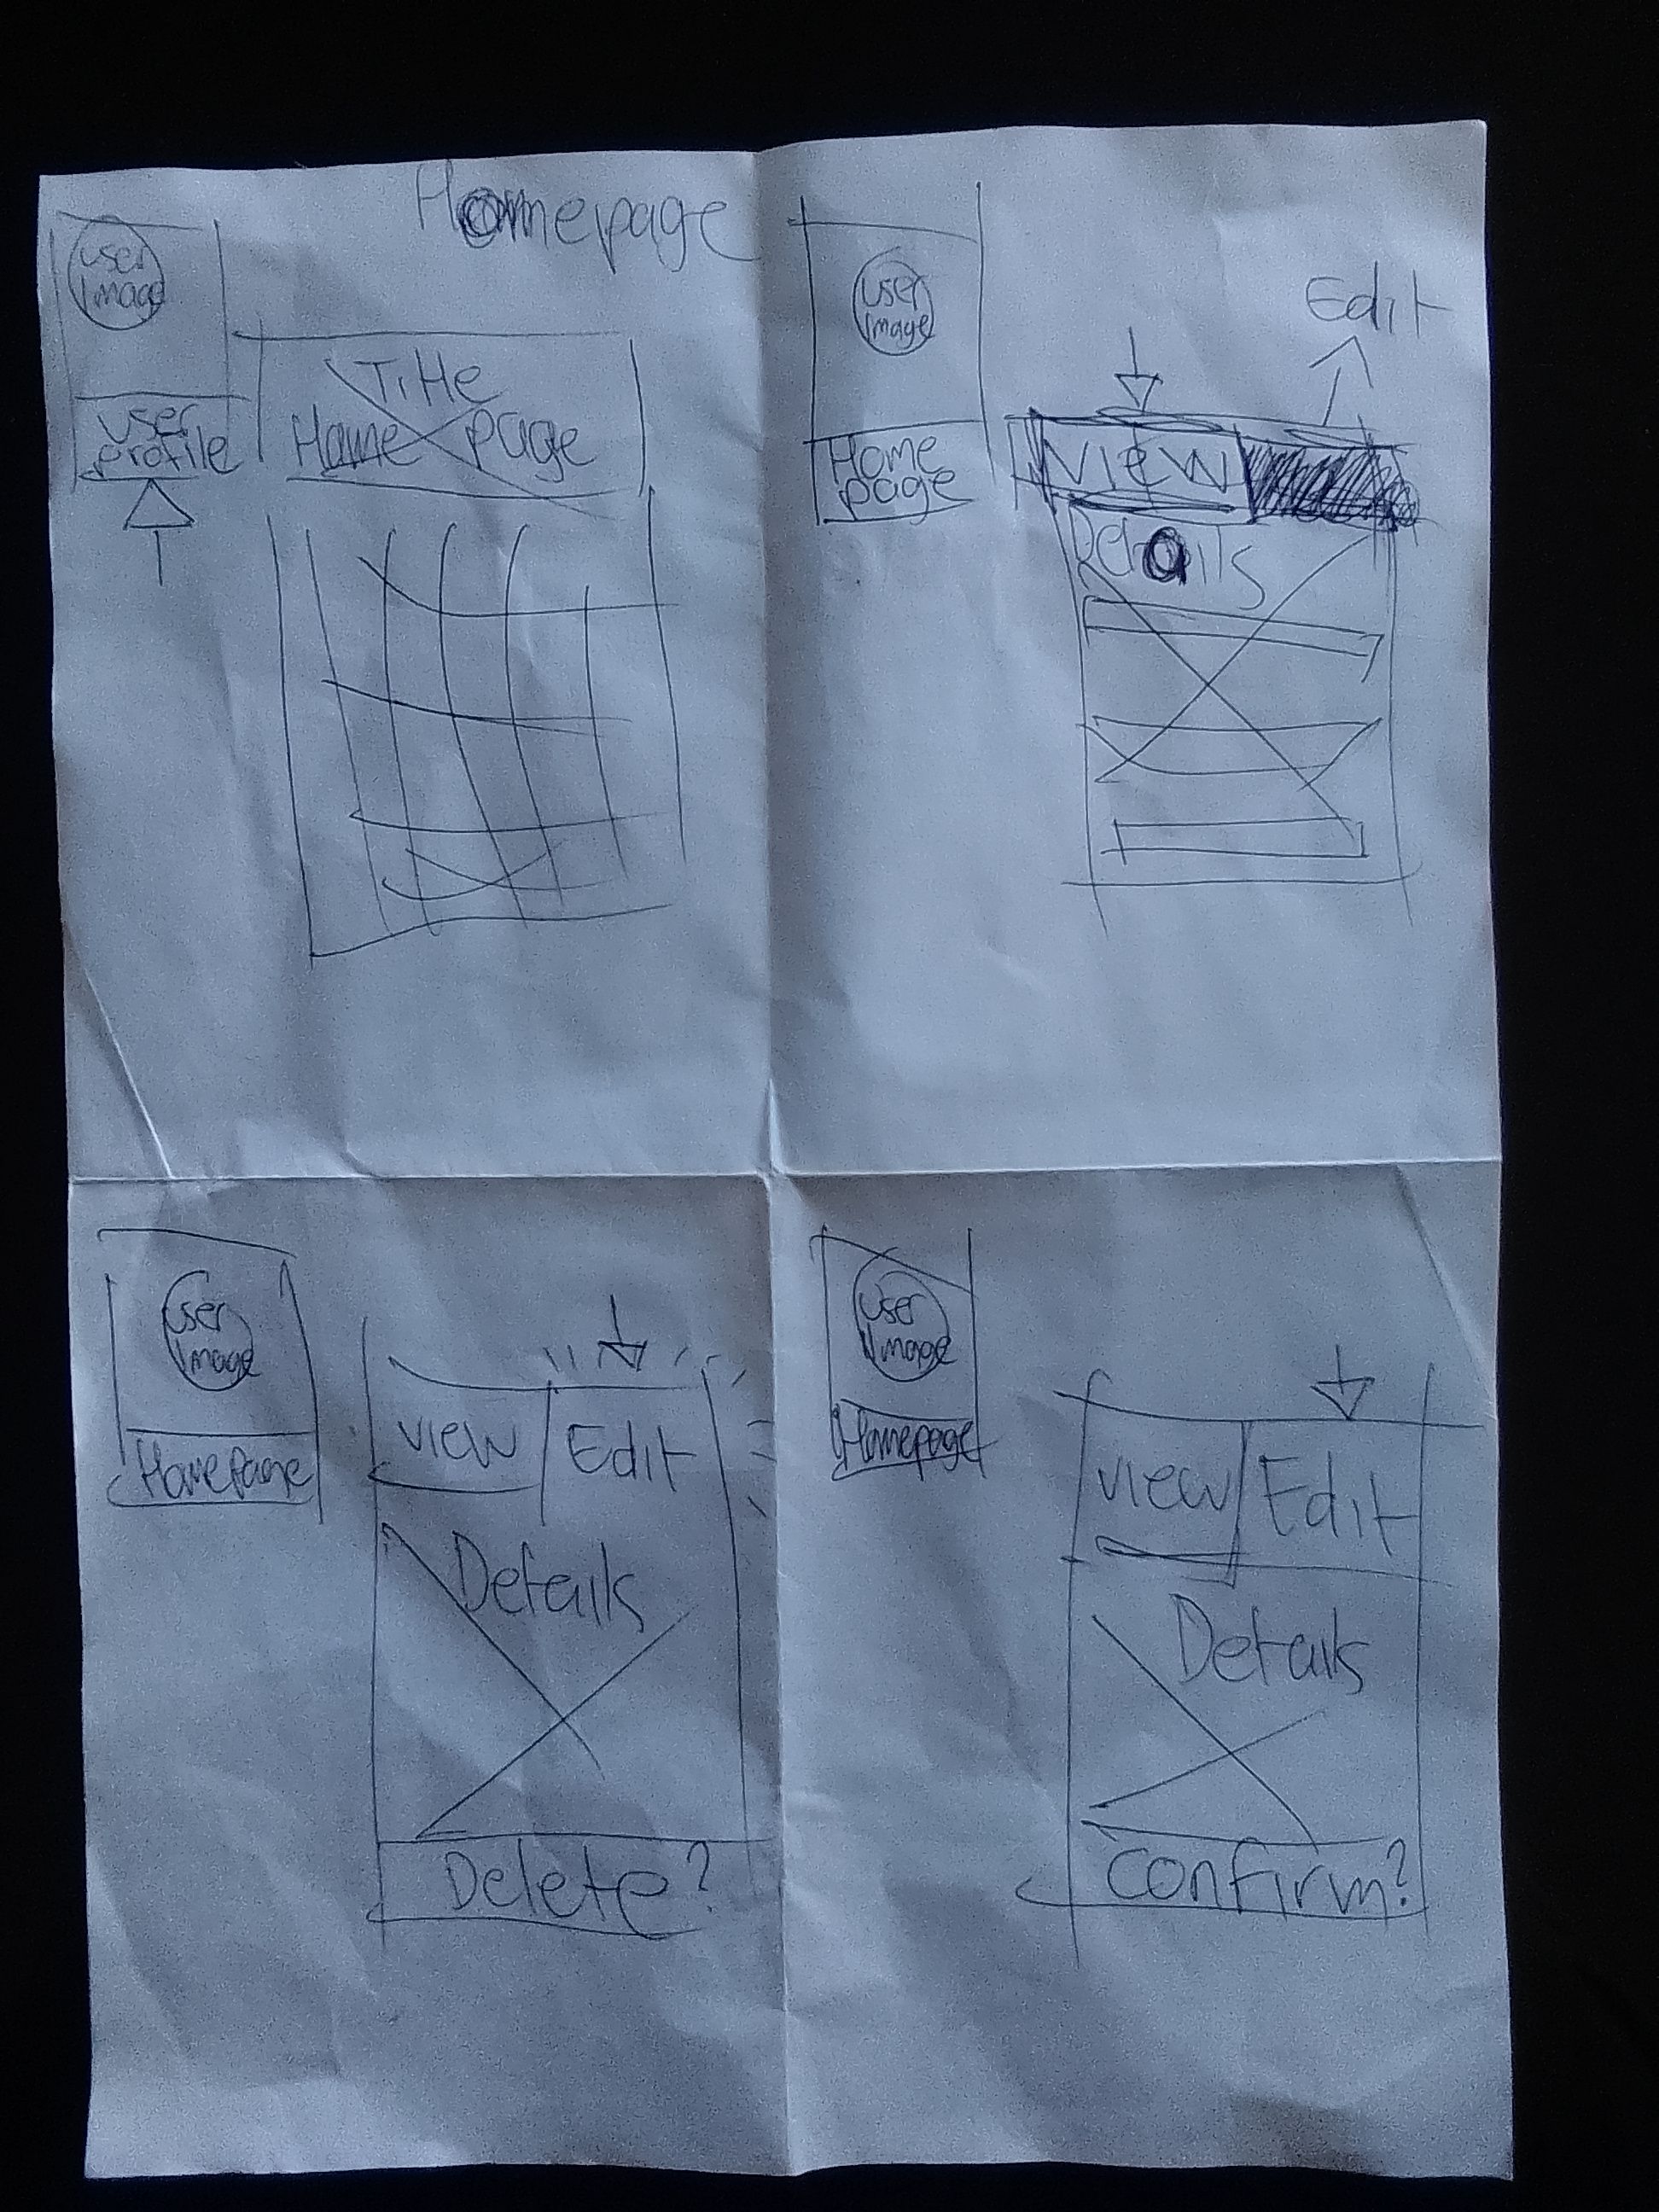 Homepage
User
Image
User
profile
Title
Home page
User
Image
Home
page
Edit
View
Details
User
Image
Homepage
View
Edit
Details
Delete?
User
Image
Homepage
View
Edit
Details
Confirm?